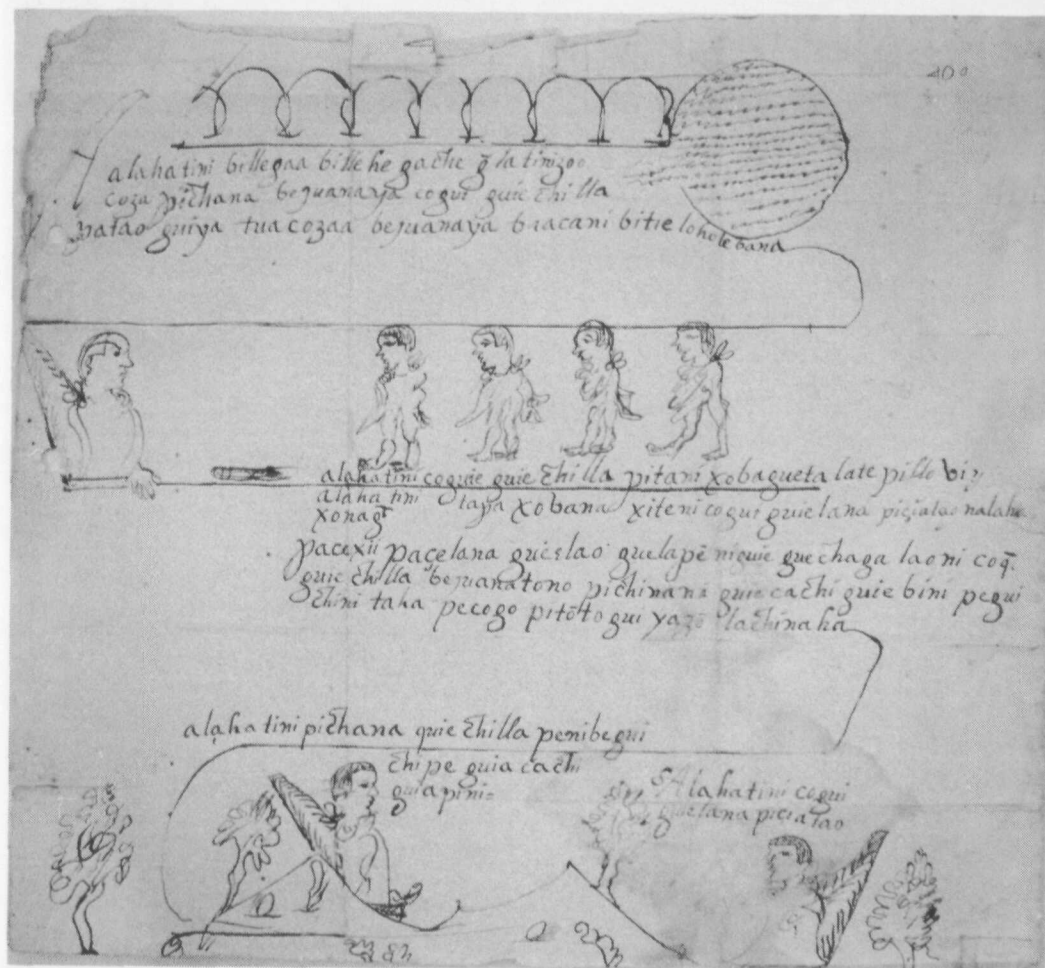 400
alahatini billegaa bille he gache q̃ la tinizoo
coza pichana bequanaya cogui guie chilla
patao guiya tua cozaa beruanaya bracani bitie lohole bana
alahatini coguie guie chilla pitani xobagueta late pillo
alahatini tapa xobana xiteni cogui guielana piziatao nalahe
xonag
pacexii pacelana guielao guelapẽ niguie guechaga laoni coq̃.
guie chilla beruanatono pichinana guie cachi guie bini pegui
chini taha pecogo pitõto gui yazo lachinaha
alahatini pichana quie chilla penibegui
chi pe guia cachi
guiapini
Alahatini cogui
guelana piziatao